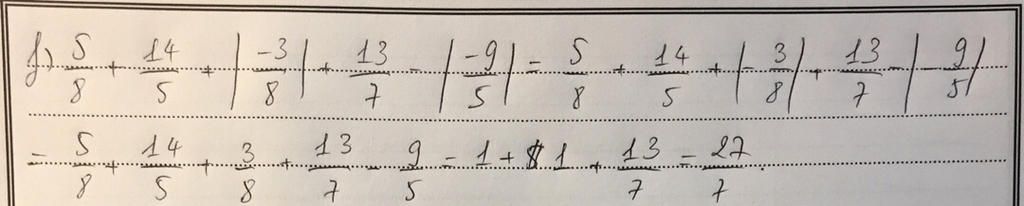 f) 5/8 + 14/5 + |-3/8| + 13/7 - |-9/5| = 5/8 + 14/5 + |-3/8| + 13/7 - |-9/5|
= 5/8 + 14/5 + 3/8 + 13/7 - 9/5 = 1 + 1 + 13/7 = 27/7.